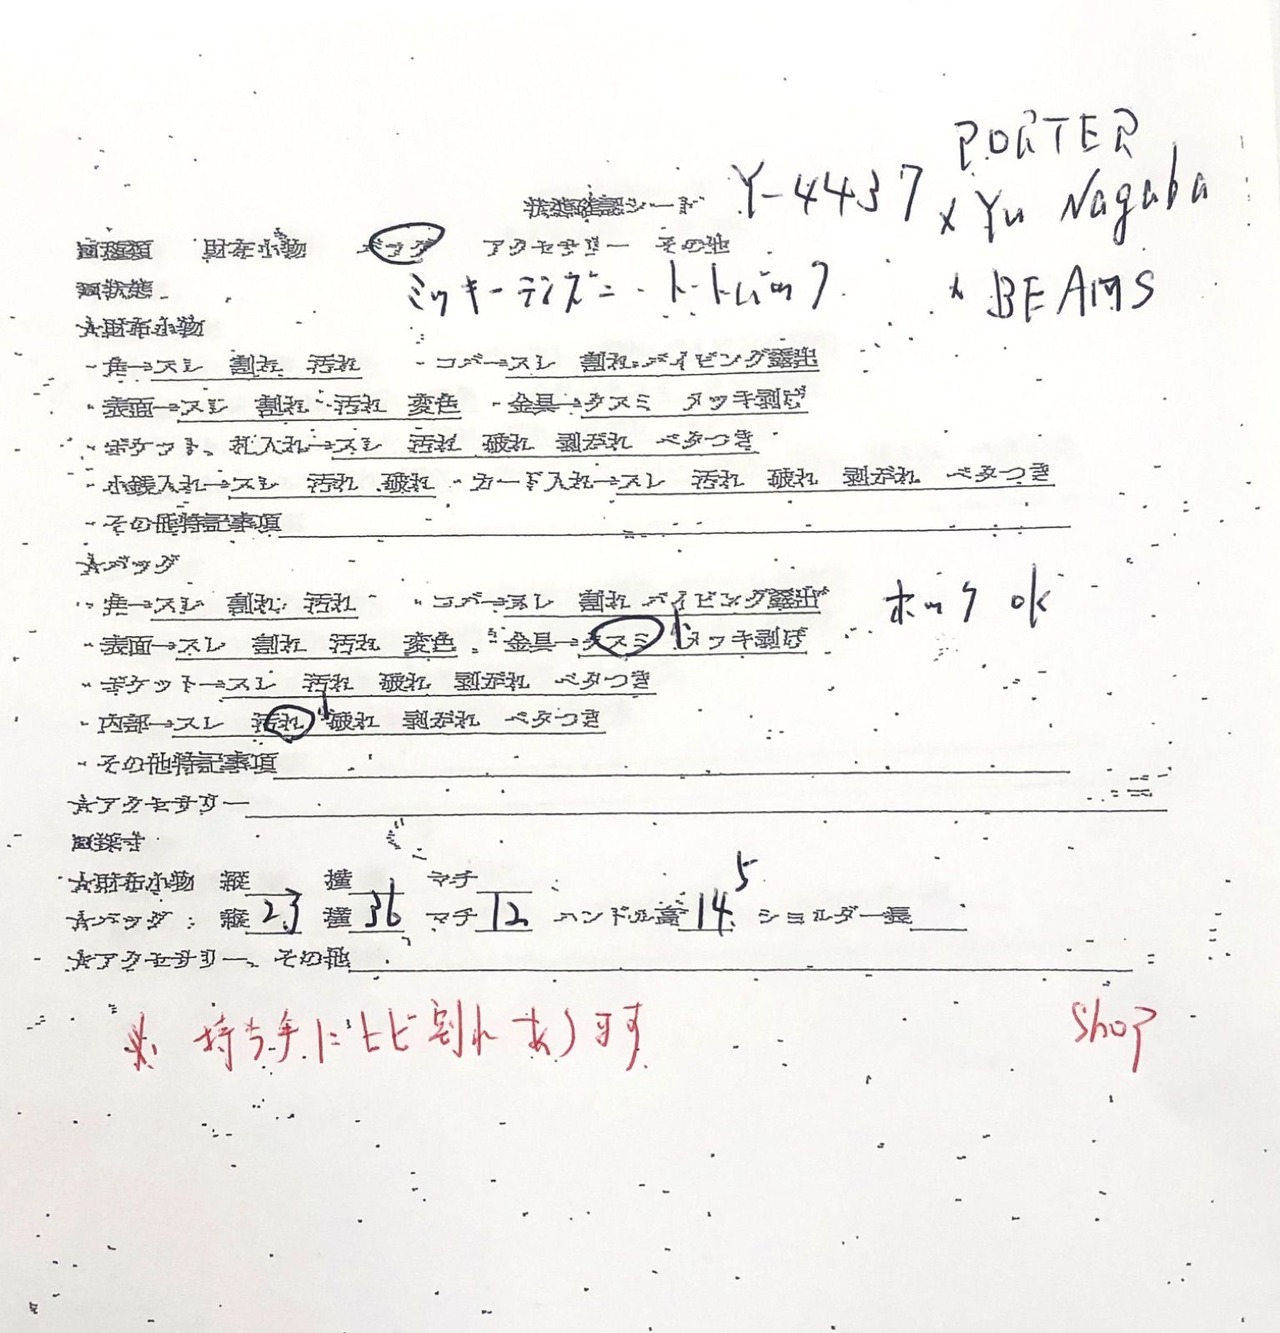 PORTER
状態確認シート Y-4437 × Yu Nagaba
回種類 財布小物 バッグ アクセサリー その他
回状態 ミッキーデズニ・トートバック × BEAMS
☆財布小物
・角→スレ 割れ 汚れ ・コバ→スレ 割れ パイピング露出
・表面→スレ 割れ 汚れ 変色 ・金具→クスミ メッキ剥げ
・ポケット、札入れ→スレ 汚れ 破れ 剥がれ ベタつき
・小銭入れ→スレ 汚れ 破れ ・カード入れ→スレ 汚れ 破れ 剥がれ ベタつき
・その他特記事項
☆バッグ
・角→スレ 割れ 汚れ ・コバ→スレ 割れ パイピング露出 ホック ok
・表面→スレ 割れ 汚れ 変色 ・金具→クスミ 小 メッキ剥げ
・ポケット→スレ 汚れ 破れ 剥がれ ベタつき
・内部→スレ 汚れ 小 破れ 剥がれ ベタつき
・その他特記事項
☆アクセサリー
回採寸
☆財布小物 縦 横 マチ
☆バッグ: 縦 23 横 36 マチ 12 ハンドル高 14.5 ショルダー長
☆アクセサリー、その他
※ 持ち手にヒビ割れあります Shop